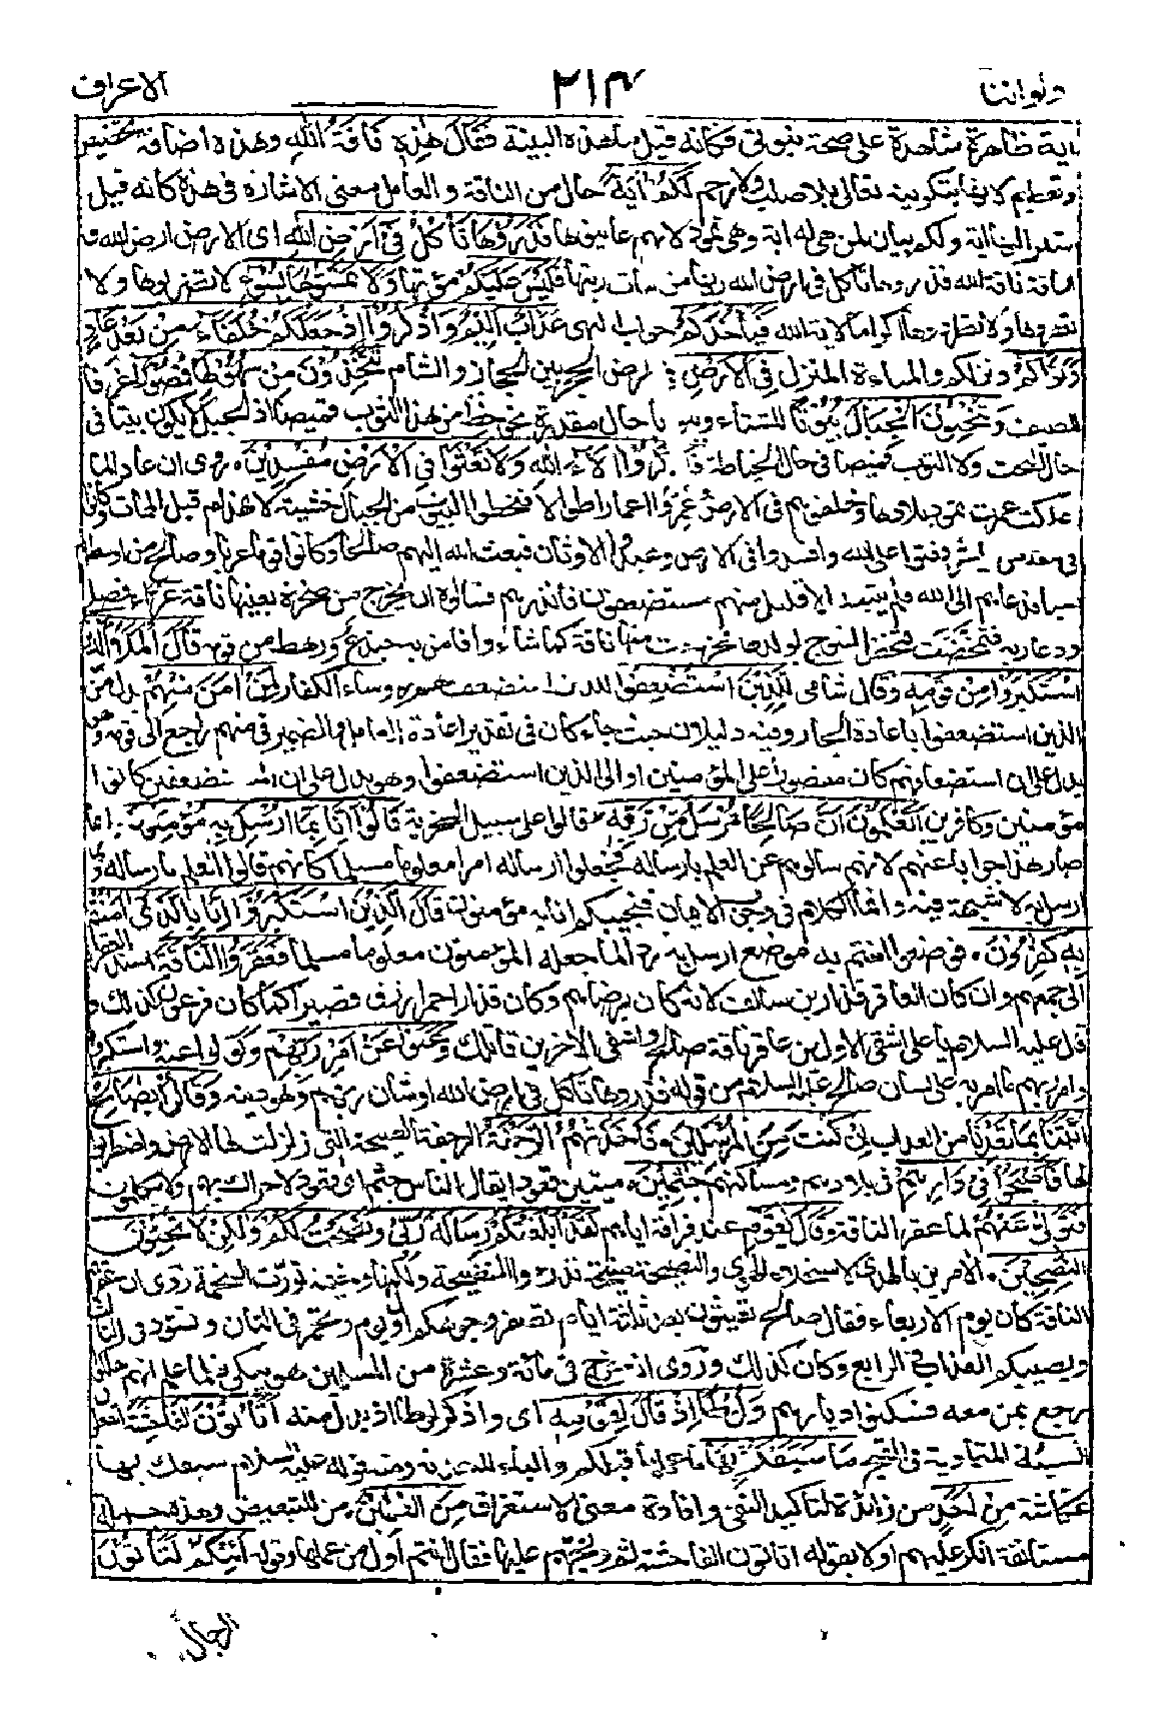 ولواننا ٢١٣ الاعراف
اية ظاهرة شاهدة على صحة نبوتى فكانه قيل ما هذه البينة فقال هٰذِهٖ نَاقَةُ اللّٰهِ وهذه اضافة تخصيص
وتعظيم لانها بتكوينه تعالى بلا صلب ولا رحم لَكُمْ اٰيَةً حال من الناقة والعامل معنى الاشارة فى هذه كانه قيل
اشير اليها اية ولكم بيان لمن هى له اية وهى ثمود لانهم عاينوها فَذَرُوْهَا تَاْكُلْ فِىْ اَرْضِ اللّٰهِ اى الارض ارض الله
الناقة ناقة الله فذروها تاكل فى ارض الله ربها من نبات ربها فليس عليكم مؤنتها وَلَا تَمَسُّوْهَا بِسُوْٓءٍ لا تضربوها ولا
تعقروها ولا تطردوها اكراما لاية الله فَيَاْخُذَكُمْ جواب النهى عَذَابٌ اَلِيْمٌ وَاذْكُرُوْٓا اِذْ جَعَلَكُمْ خُلَفَآءَ مِنْۢ بَعْدِ عَادٍ
وَّبَوَّاَكُمْ ونزلكم والمباءة المنزل فِى الْاَرْضِ فى ارض الحجر بين الحجاز والشام تَتَّخِذُوْنَ مِنْ سُهُوْلِهَا قُصُوْرًا غرفا
للصيف وَّتَنْحِتُوْنَ الْجِبَالَ بُيُوْتًا للشتاء وبيوتا حال مقدرة نحو خط من هذا الثوب قميصا اذ الجبل لا يكون بيتا فى
حال النحت ولا الثوب قميصا فى حال الخياطة فَاذْكُرُوْٓا اٰلَآءَ اللّٰهِ وَلَا تَعْثَوْا فِى الْاَرْضِ مُفْسِدِيْنَ روى ان عادا لما
هلكت عمرت ثمود بلادها وخلفوهم فى الارض وعمروا اعمارا طوالا فنحتوا البيوت من الجبال خشية الانهدام قبل الممات وكانوا
فى سعة من العيش فعتوا على الله وافسدوا فى الارض وعبدوا الاوثان فبعث الله اليهم صالحا وكانوا قوما عربا وصالح من اوسطهم
نسبا فدعاهم الى الله فلم يتبعه الا قليل منهم مستضعفون فانذرهم فسالوه ان يخرج من صخرة بعينها ناقة عشراء فصلى
ودعا ربه فتمخضت تمخض النتوج بولدها فخرجت منها ناقة كما شاءوا فامن به جندع ورهط من قومه قَالَ الْمَلَاُ الَّذِيْنَ
اسْتَكْبَرُوْا مِنْ قَوْمِهٖ وقال شامى لِلَّذِيْنَ اسْتُضْعِفُوْا للذين استضعفهم رؤساء الكفار لِمَنْ اٰمَنَ مِنْهُمْ بدل من
الذين استضعفوا باعادة الجار وفيه دليل ان البدل حيث جاء كان فى تقدير اعادة العامل والضمير فى منهم راجع الى قومه وهو
يدل على ان استضعافهم كان مقصورا على المؤمنين او الى الذين استضعفوا وهو يدل على ان المستضعفين كانوا
مؤمنين وكافرين اَتَعْلَمُوْنَ اَنَّ صَالِحًا مُّرْسَلٌ مِّنْ رَّبِّهٖ قالوا على سبيل السخرية قَالُوْٓا اِنَّا بِمَآ اُرْسِلَ بِهٖ مُؤْمِنُوْنَ انما
صار هذا جوابا عنهم لانهم سالوهم عن العلم بارساله فجعلوا ارساله امرا معلوما مسلما كانهم قالوا العلم بارساله وبما
ارسل به لا شبهة فيه وانما الكلام فى وجوب الايمان فنخبركم انا به مؤمنون قَالَ الَّذِيْنَ اسْتَكْبَرُوْٓا اِنَّا بِالَّذِىْٓ اٰمَنْتُمْ
بِهٖ كٰفِرُوْنَ فوضعوا امنتم به موضع ارسل به ردا لما جعله المؤمنون معلوما مسلما فَعَقَرُوا النَّاقَةَ اسند العقر
الى جميعهم وان كان العاقر قدار بن سالف لانه كان برضاهم وكان قدار احمر ازرق قصيرا كما كان فرعون كذلك و
قال عليه السلام يا على اشقى الاولين عاقر ناقة صالح واشقى الاخرين قاتلك وَعَتَوْا عَنْ اَمْرِ رَبِّهِمْ وتولوا عنه واستكبروا
وامر ربهم ما امر به على لسان صالح عليه السلام من قوله فذروها تاكل فى ارض الله او شان ربهم وهو دينه وَقَالُوْا يٰصٰلِحُ
ائْتِنَا بِمَا تَعِدُنَآ من العذاب اِنْ كُنْتَ مِنَ الْمُرْسَلِيْنَ فَاَخَذَتْهُمُ الرَّجْفَةُ الصيحة التى زلزلت لها الارض واضطربوا
لها فَاَصْبَحُوْا فِىْ دَارِهِمْ فى بلادهم ومساكنهم جٰثِمِيْنَ ميتين قعودا يقال الناس جثم اى قعود لا حراك بهم ولا يتكلمون
فَتَوَلّٰى عَنْهُمْ لما عقروا الناقة وَقَالَ يٰقَوْمِ عند فراقه اياهم لَقَدْ اَبْلَغْتُكُمْ رِسَالَةَ رَبِّىْ وَنَصَحْتُ لَكُمْ وَلٰكِنْ لَّا تُحِبُّوْنَ
النّٰصِحِيْنَ الامرين بالهدى لاستحلاء الهوى والنصيحة منيحة تدرأ الفضيحة ولكنها وخيمة تورث السخيمة روى ان عقرهم
الناقة كان يوم الاربعاء فقال صالح تعيشون بعده ثلثة ايام تصفر وجوهكم اول يوم وتحمر فى الثانى وتسود فى الثالث
ويصيبكم العذاب فى الرابع وكان كذلك وروى انه خرج فى مائة وعشرة من المسلمين وهو يبكى فلما علم انهم هلكوا
رجع بمن معه فسكنوا ديارهم وَلُوْطًا اِذْ قَالَ لِقَوْمِهٖٓ اى واذكر لوطا واذ بدل منه اَتَاْتُوْنَ الْفَاحِشَةَ اتفعلون
السيئة المتمادية فى القبح مَا سَبَقَكُمْ بِهَا ما عملها قبلكم والباء للتعدية ومنه قوله عليه السلام سبقك بها
عكاشة مِنْ اَحَدٍ من زائدة لتاكيد النفى وافادة معنى الاستغراق مِّنَ الْعٰلَمِيْنَ من للتبعيض وهذه جملة
مستانفة انكر عليهم اولا بقوله اتاتون الفاحشة ثم وبخهم عليها فقال انتم اول من عملها وقوله اَئِنَّكُمْ لَتَاْتُوْنَ
الرجال